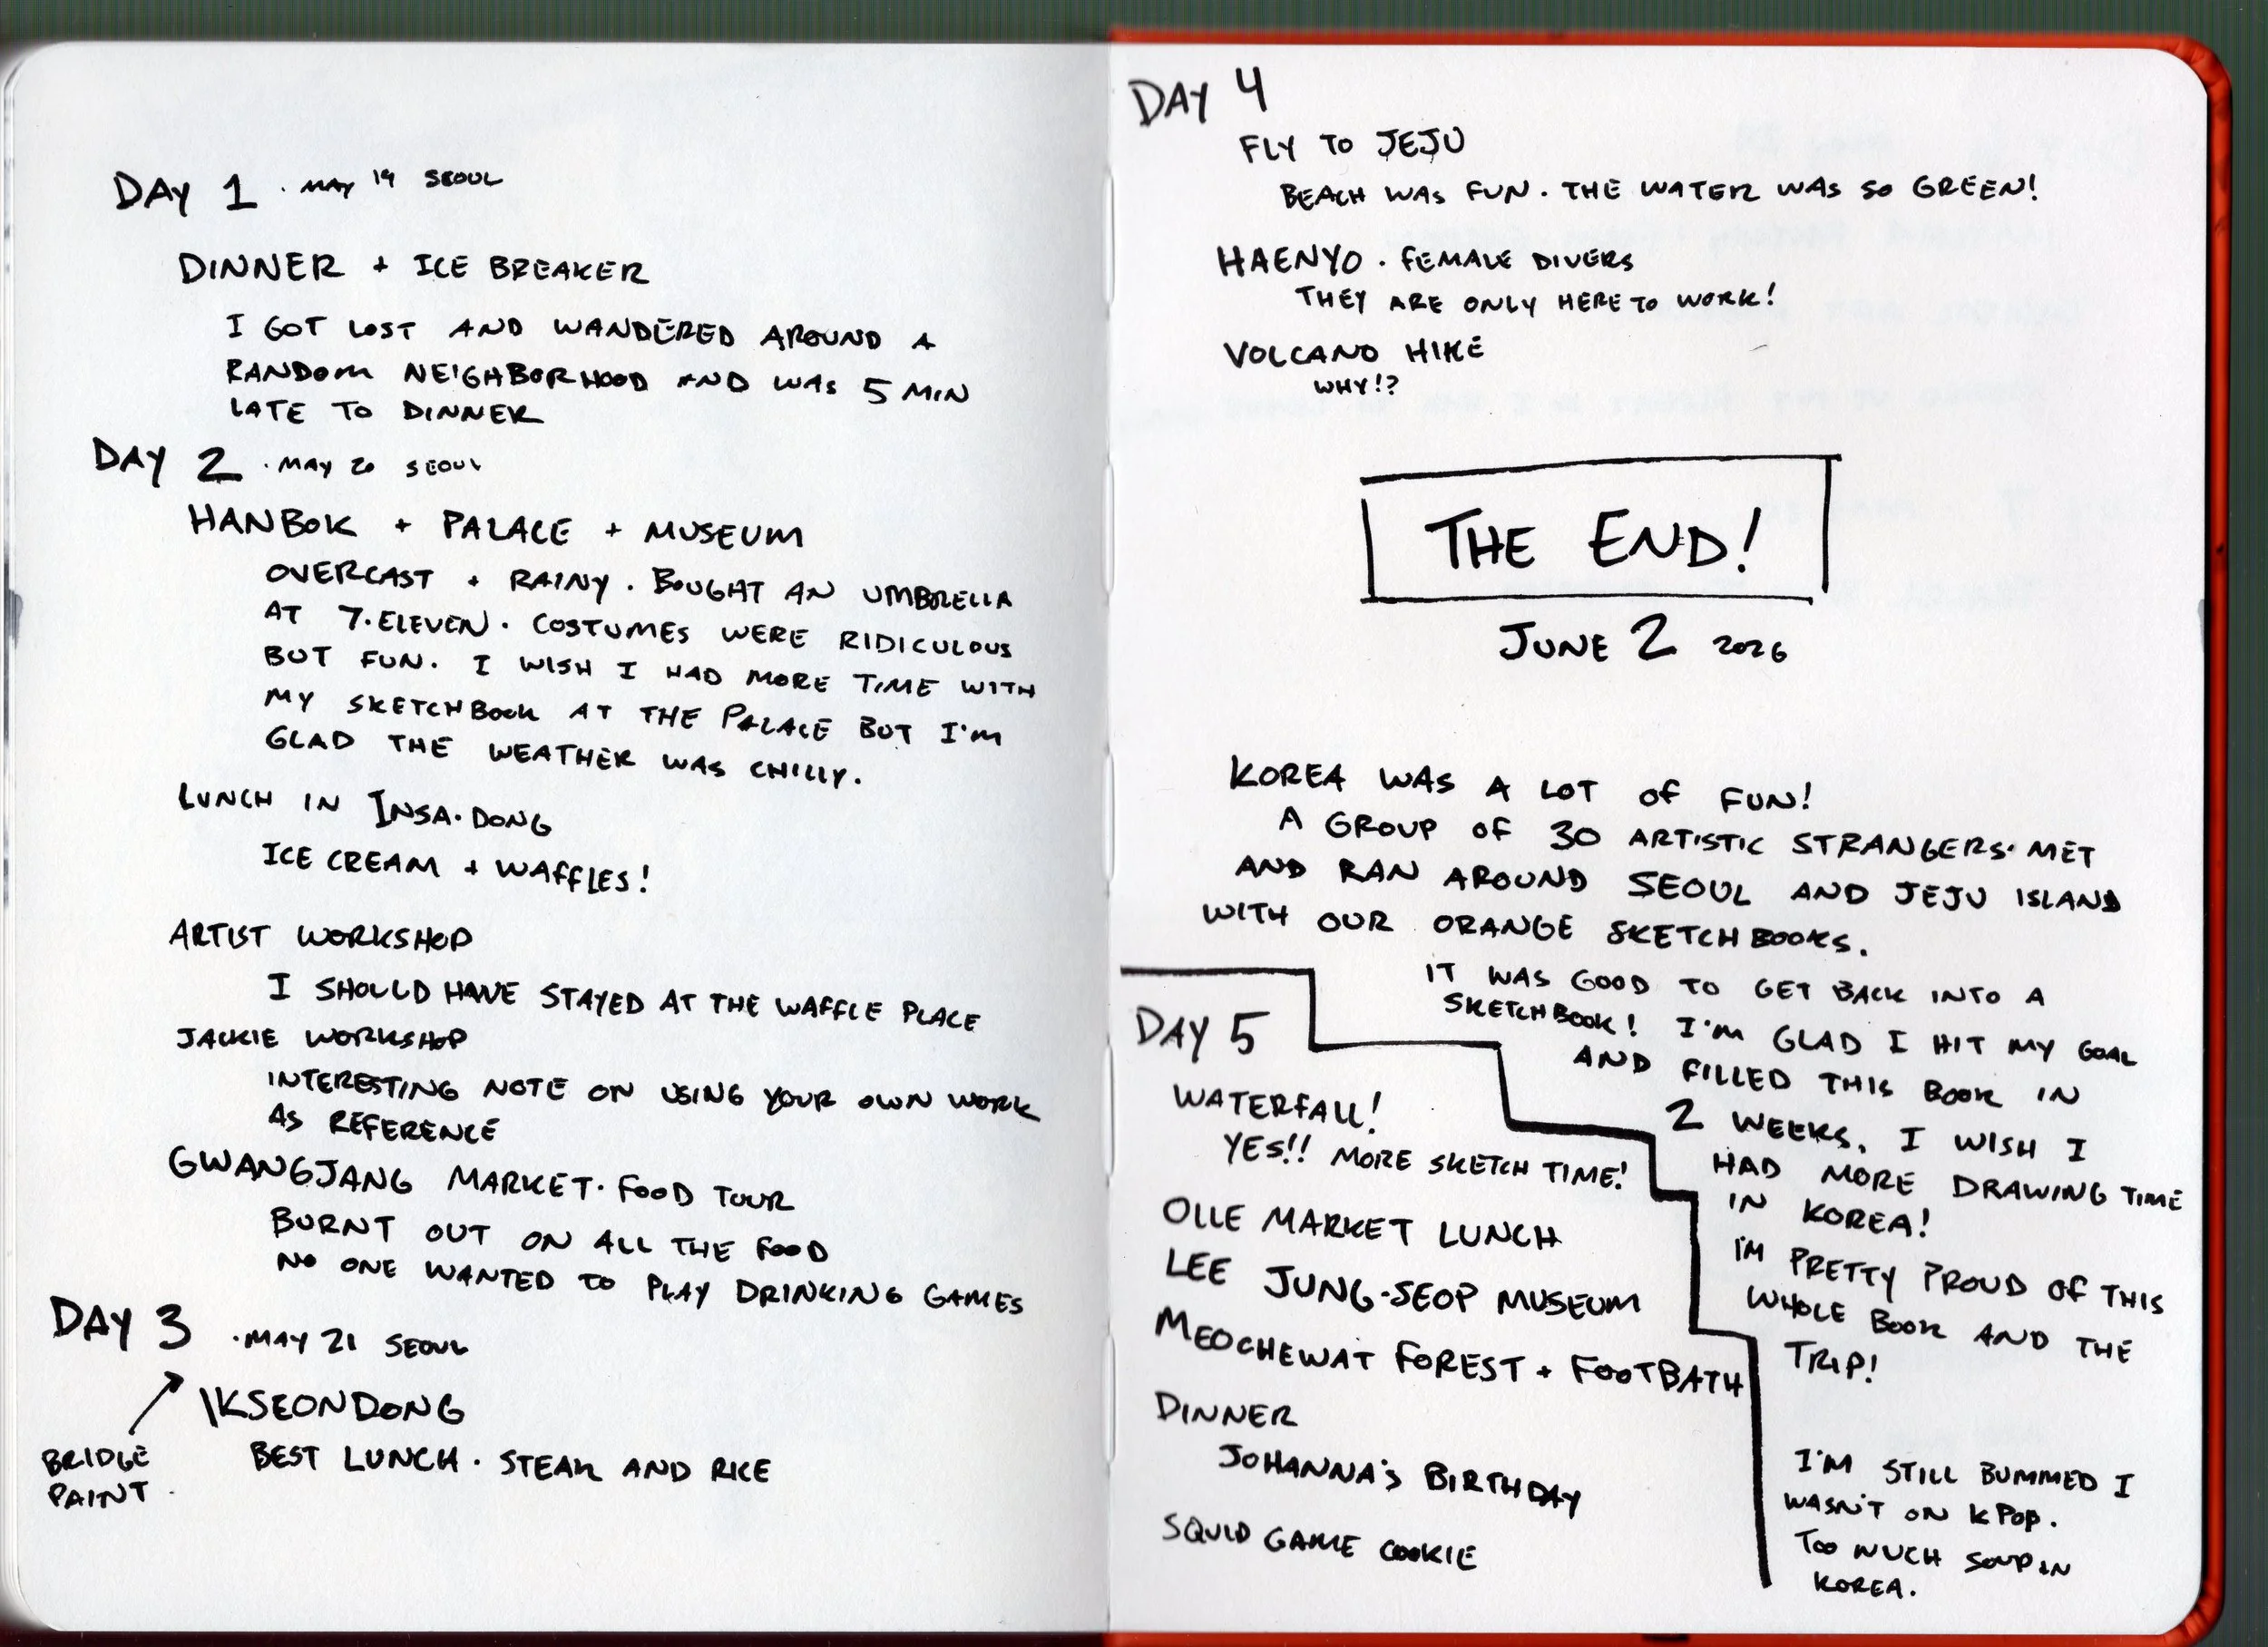 DAY 1 · MAY 19 SEOUL
DINNER + ICE BREAKER
I GOT LOST AND WANDERED AROUND A
RANDOM NEIGHBORHOOD AND WAS 5 MIN
LATE TO DINNER
DAY 2 · MAY 20 SEOUL
HANBOK + PALACE + MUSEUM
OVERCAST + RAINY. BOUGHT AN UMBRELLA
AT 7·ELEVEN. COSTUMES WERE RIDICULOUS
BUT FUN. I WISH I HAD MORE TIME WITH
MY SKETCHBOOK AT THE PALACE BUT I'M
GLAD THE WEATHER WAS CHILLY.
LUNCH IN INSA·DONG
ICE CREAM + WAFFLES!
ARTIST WORKSHOP
I SHOULD HAVE STAYED AT THE WAFFLE PLACE
JACKIE WORKSHOP
INTERESTING NOTE ON USING YOUR OWN WORK
AS REFERENCE
GWANGJANG MARKET · FOOD TOUR
BURNT OUT ON ALL THE FOOD
NO ONE WANTED TO PLAY DRINKING GAMES
DAY 3 · MAY 21 SEOUL
IKSEONDONG
BEST LUNCH · STEAK AND RICE
BRIDGE
PAINT.
DAY 4
FLY TO JEJU
BEACH WAS FUN. THE WATER WAS SO GREEN!
HAENYO · FEMALE DIVERS
THEY ARE ONLY HERE TO WORK!
VOLCANO HIKE
WHY!?
THE END!
JUNE 2 2026
KOREA WAS A LOT OF FUN!
A GROUP OF 30 ARTISTIC STRANGERS MET
AND RAN AROUND SEOUL AND JEJU ISLAND
WITH OUR ORANGE SKETCHBOOKS.
IT WAS GOOD TO GET BACK INTO A
SKETCHBOOK! I'M GLAD I HIT MY GOAL
AND FILLED THIS BOOK IN
2 WEEKS. I WISH I
HAD MORE DRAWING TIME
IN KOREA!
I'M PRETTY PROUD OF THIS
WHOLE BOOK AND THE
TRIP!
I'M STILL BUMMED I
WASN'T ON KPOP.
TOO MUCH SOUP IN
KOREA.
DAY 5
WATERFALL!
YES!! MORE SKETCH TIME!
OLLE MARKET LUNCH
LEE JUNG·SEOP MUSEUM
MEOCHEWAT FOREST + FOOTBATH
DINNER
JOHANNA'S BIRTHDAY
SQUID GAME COOKIE